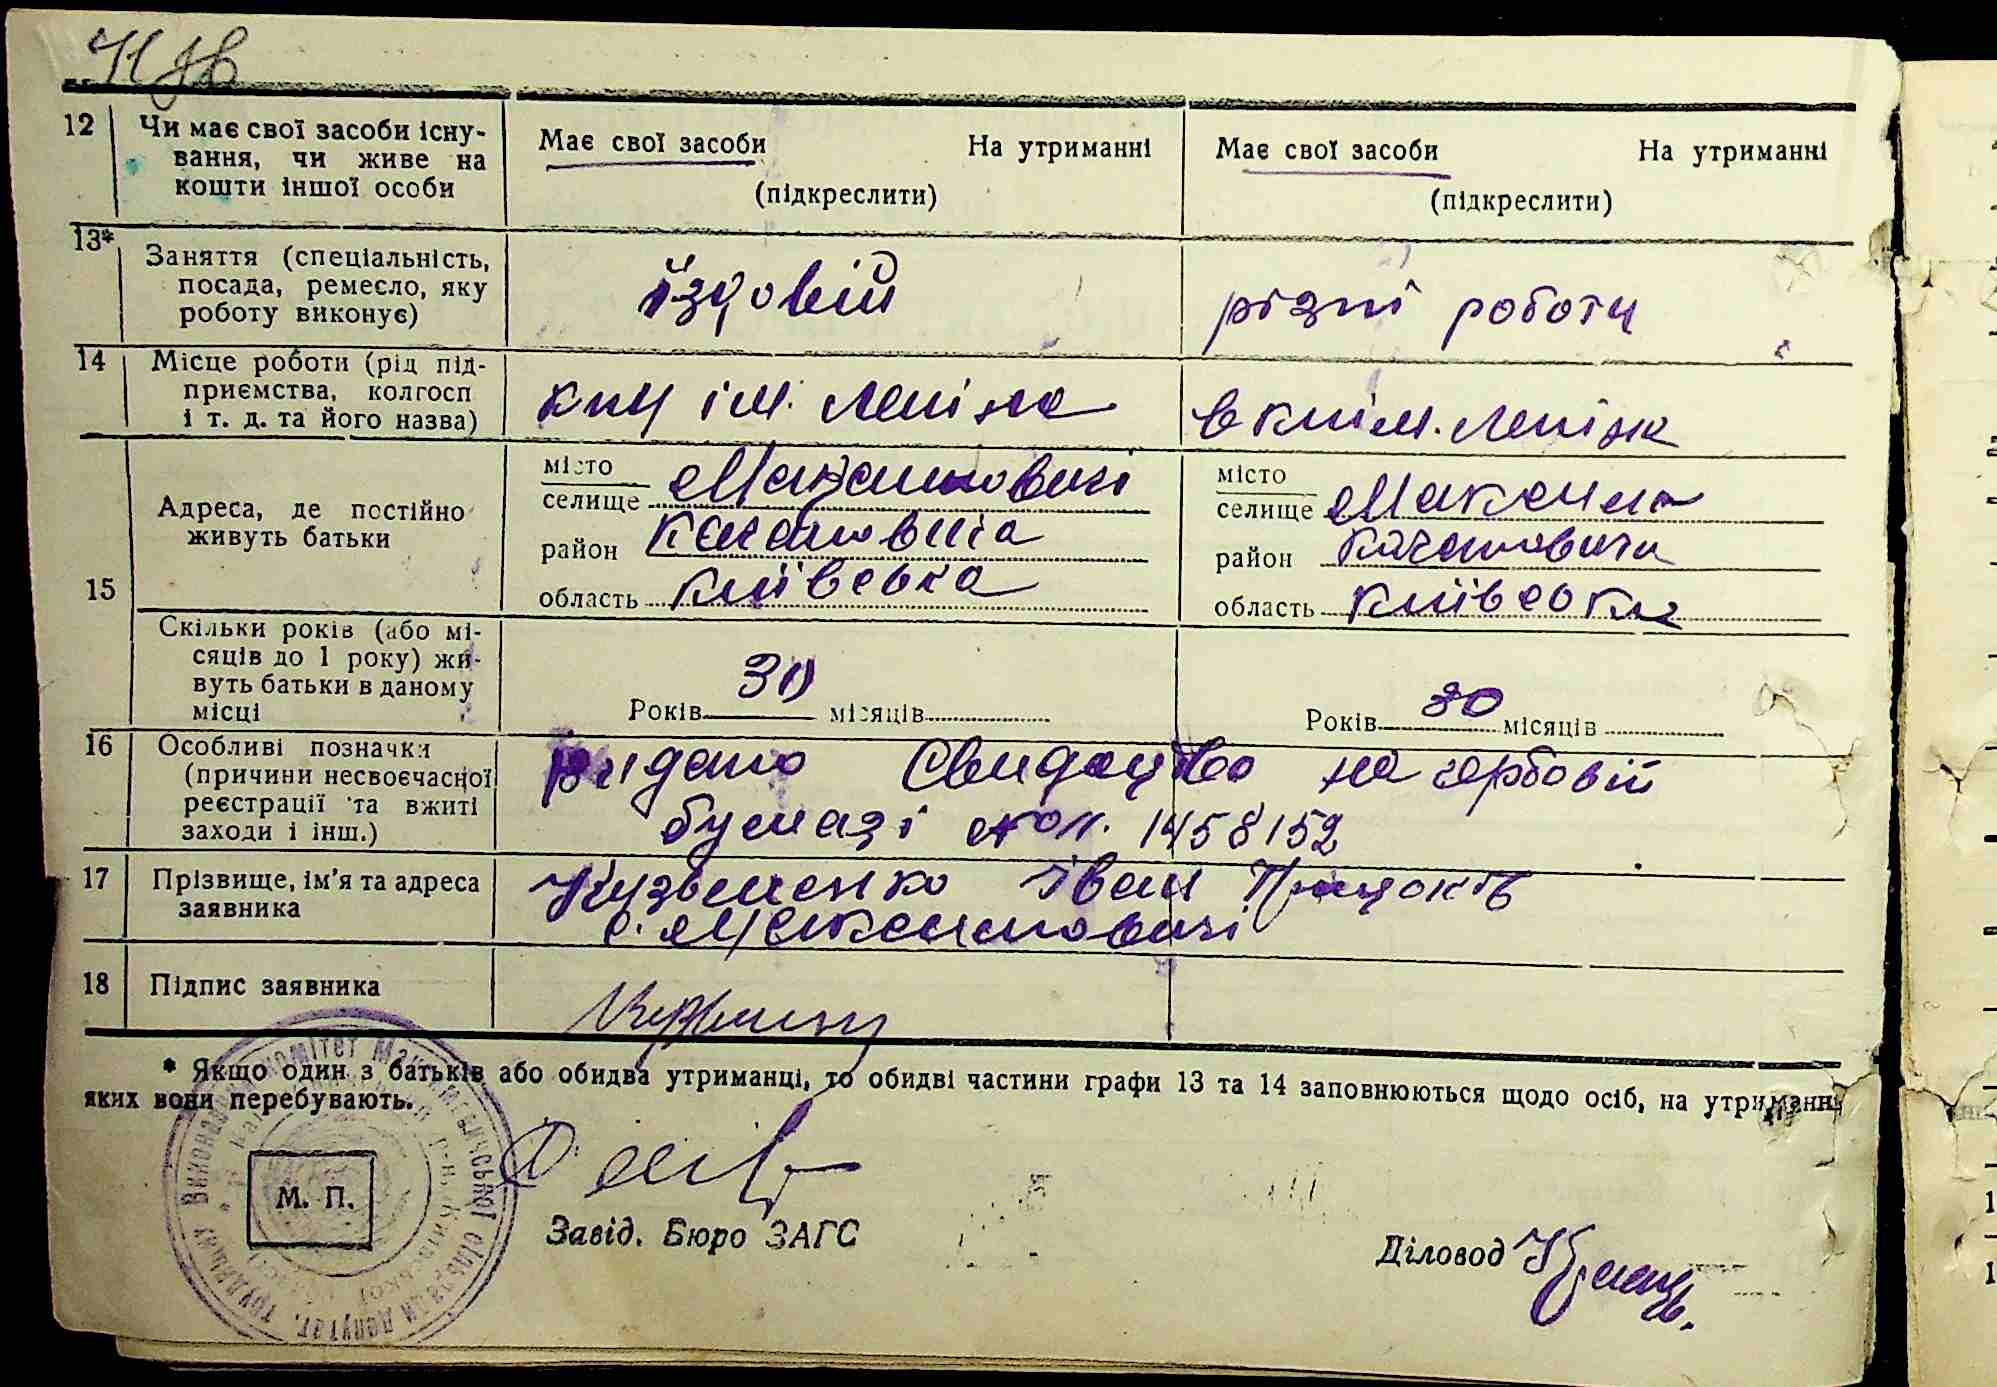 12 Чи має свої засоби існу-
вання, чи живе на
кошти іншої особи
Має свої засоби На утриманні
(підкреслити)
Має свої засоби На утриманні
(підкреслити)
13* Заняття (спеціальність,
посада, ремесло, яку
роботу виконує)
їздовій
різні роботи
14 Місце роботи (рід під-
приємства, колгосп
і т. д. та його назва)
кпц ім. Леніна
в кпім. Леніна
15 Адреса, де постійно
живуть батьки
місто
селище Макалиновичі
район
область Київська
місто
селище
район
область Київська
Скільки років (або мі-
сяців до 1 року) жи-
вуть батьки в даному
місці
Років 30 місяців
Років 30 місяців
16 Особливі позначки
(причини несвоєчасної
реєстрації та вжиті
заходи і інш.)
Видано Свидоцтво на гербовій
бумазі 1458152
17 Прізвище, ім'я та адреса
заявника
Кузьменко Іван
с.
18 Підпис заявника
* Якщо один з батьків або обидва утриманці, то обидві частини графи 13 та 14 заповнюються щодо осіб, на утриманні
яких вони перебувають.
М. П.
Завід. Бюро ЗАГС
Діловод